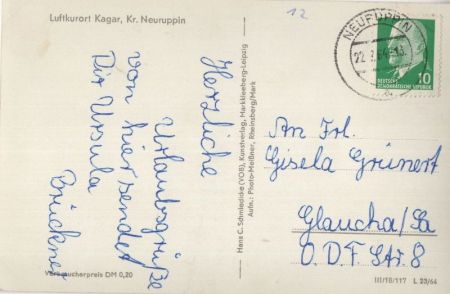 Luftkurort Kagar, Kr. Neuruppin
12
Herzliche
Urlaubsgrüße
von hier sendet
Dir Ursula
Brückner
Verbraucherpreis DM 0,20
Hans C. Schmiedicke (VOB), Kunstverlag, Markkleeberg-Leipzig
Aufn.: Photo-Meißner, Rheinsberg/Mark
NEURUPPIN
22.
10
DEUTSCHE
DEMOKRATISCHE REPUBLIK
An Frl.
Gisela Grünert
Glaucha/Sa
O.D.F. Str. 8
III/18/117 L 23/64